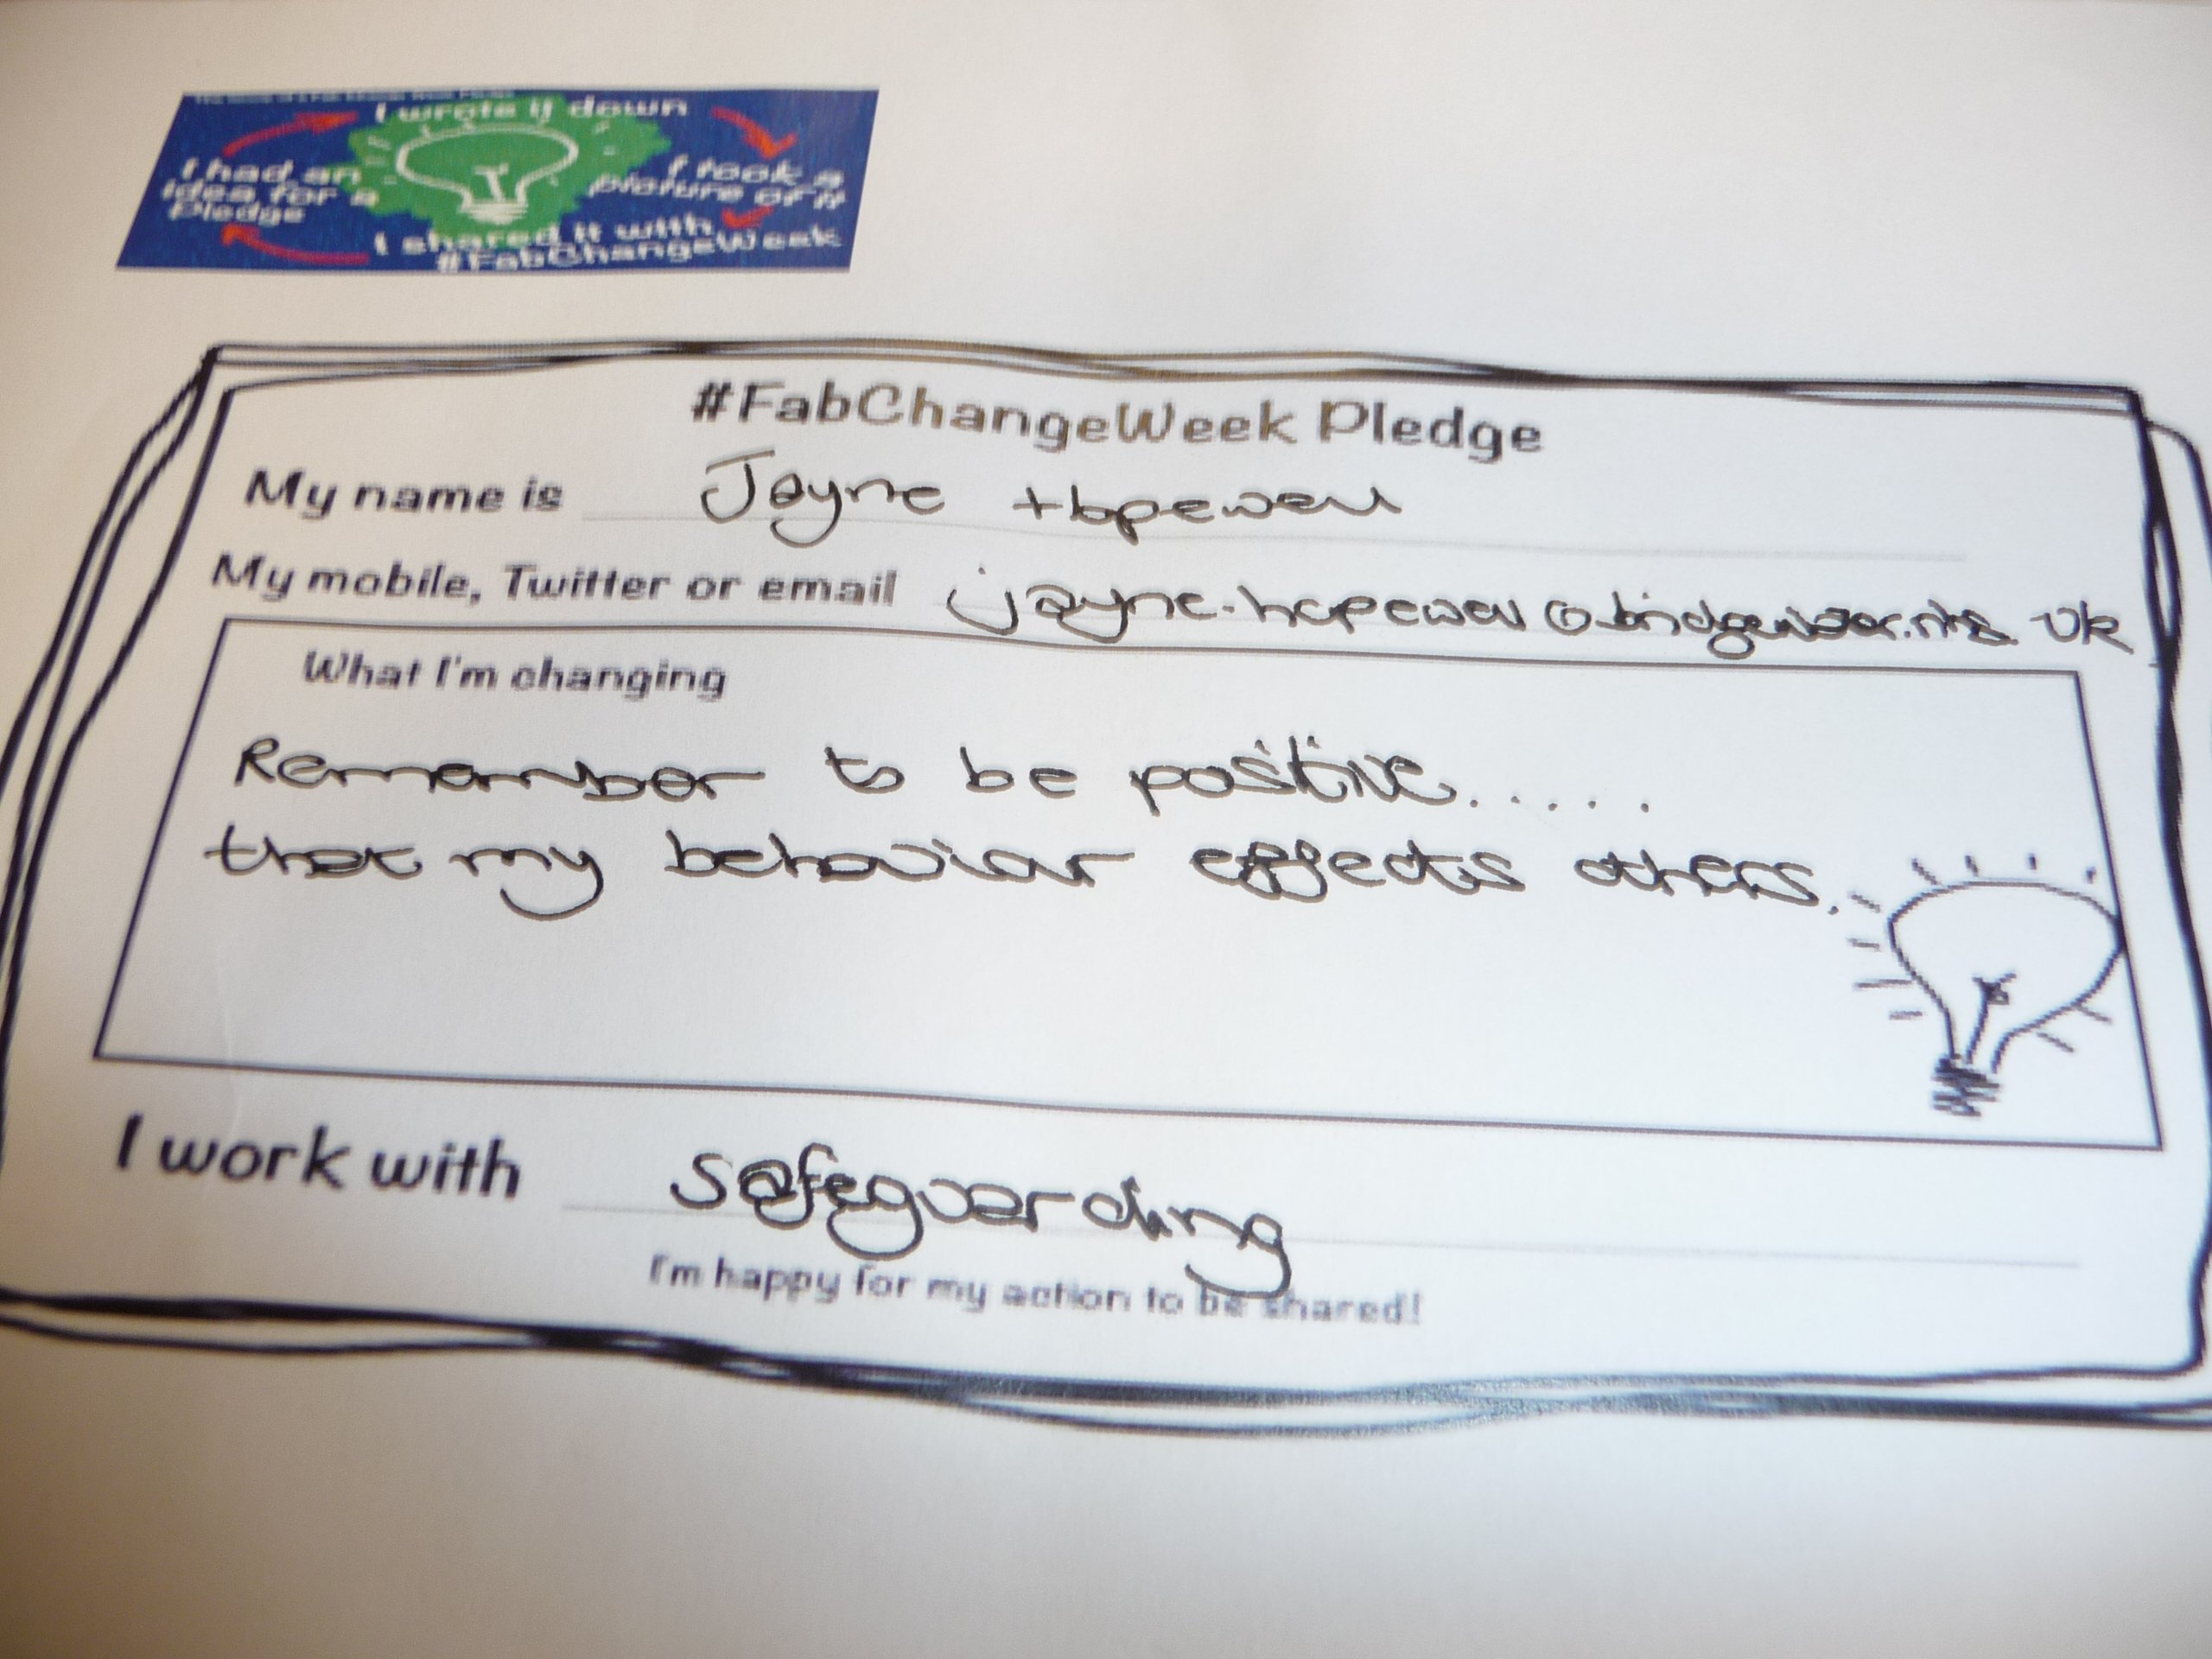 I wrote it down
I had an
idea for a
Pledge
I took a
picture of it
I shared it with
#FabChangeWeek
#FabChangeWeek Pledge
My name is Jayne Hopewell
My mobile, Twitter or email jayne.hopewell@bridgewater.nhs.uk
What I'm changing
Remember to be positive.....
that my behaviour effects others.
I work with Safeguarding
I'm happy for my action to be shared!